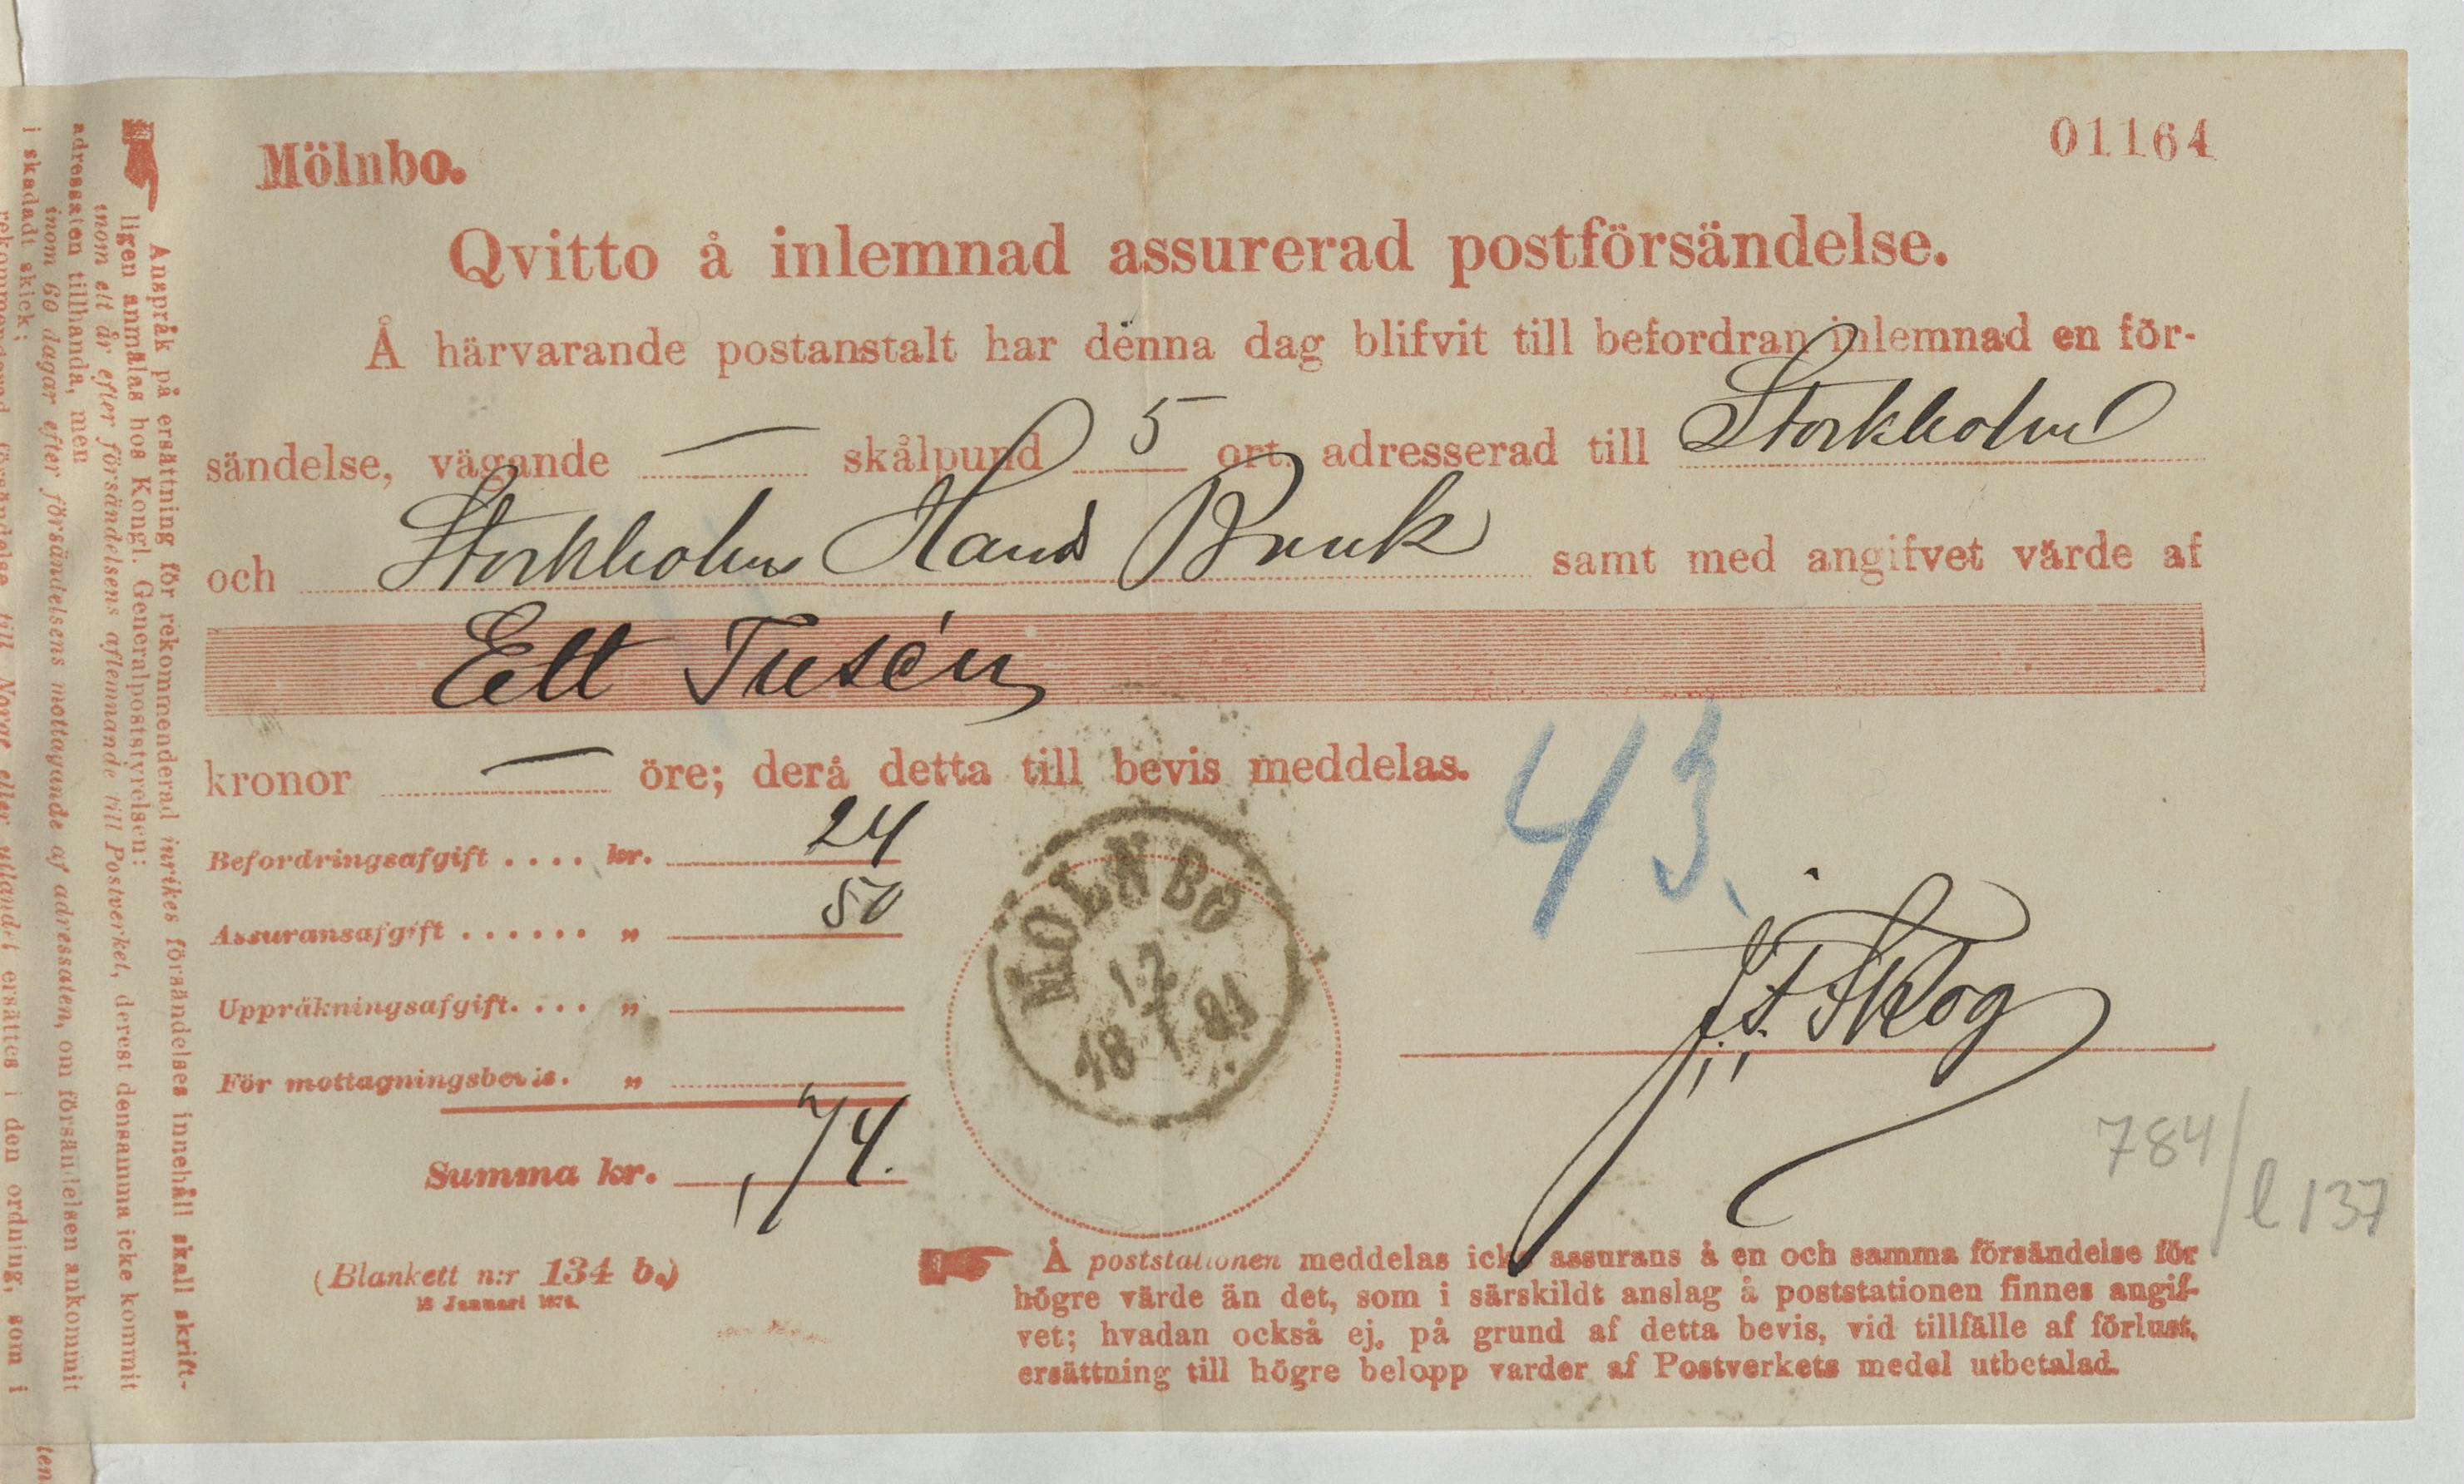 Mölnbo.
01164
Qvitto å inlemnad assurerad postförsändelse.
Å härvarande postanstalt har denna dag blifvit till befordran inlemnad en för-
sändelse, vägande — skålpund 5 ort, adresserad till Stockholm
och Stockholms Hand Bank samt med angifvet värde af
Ett Tusén
kronor — öre; derå detta till bevis meddelas.
43.
Befordringsafgift .... kr. 24
Assuransafgift ...... „ 50
Uppräkningsafgift.... „
För mottagningsbevis. „
Summa kr. ,74.
MÖLNBO
12
18 7 81
Skog
784/l 137
(Blankett n:r 134 b.)
Januari
Å poststationen meddelas icke assurans å en och samma försändelse för
högre värde än det, som i särskildt anslag å poststationen finnes angif-
vet; hvadan också ej, på grund af detta bevis, vid tillfälle af förlust,
ersättning till högre belopp varder af Postverkets medel utbetalad.
Anspråk på ersättning för rekommenderad inrikes försändelses innehåll skall skrift-
ligen anmälas hos Kongl. Generalpoststyrelsen:
inom ett år efter försändelsens aflemnande till Postverket, derest densamma icke kommit
adressaten tillhanda, men
inom 60 dagar efter försändelsens mottagande af adressaten, om försändelsen ankommit
i skadadt skick;
rekommenderad försändelse till Norge eller utlandet ersättes i den ordning, som i
ten